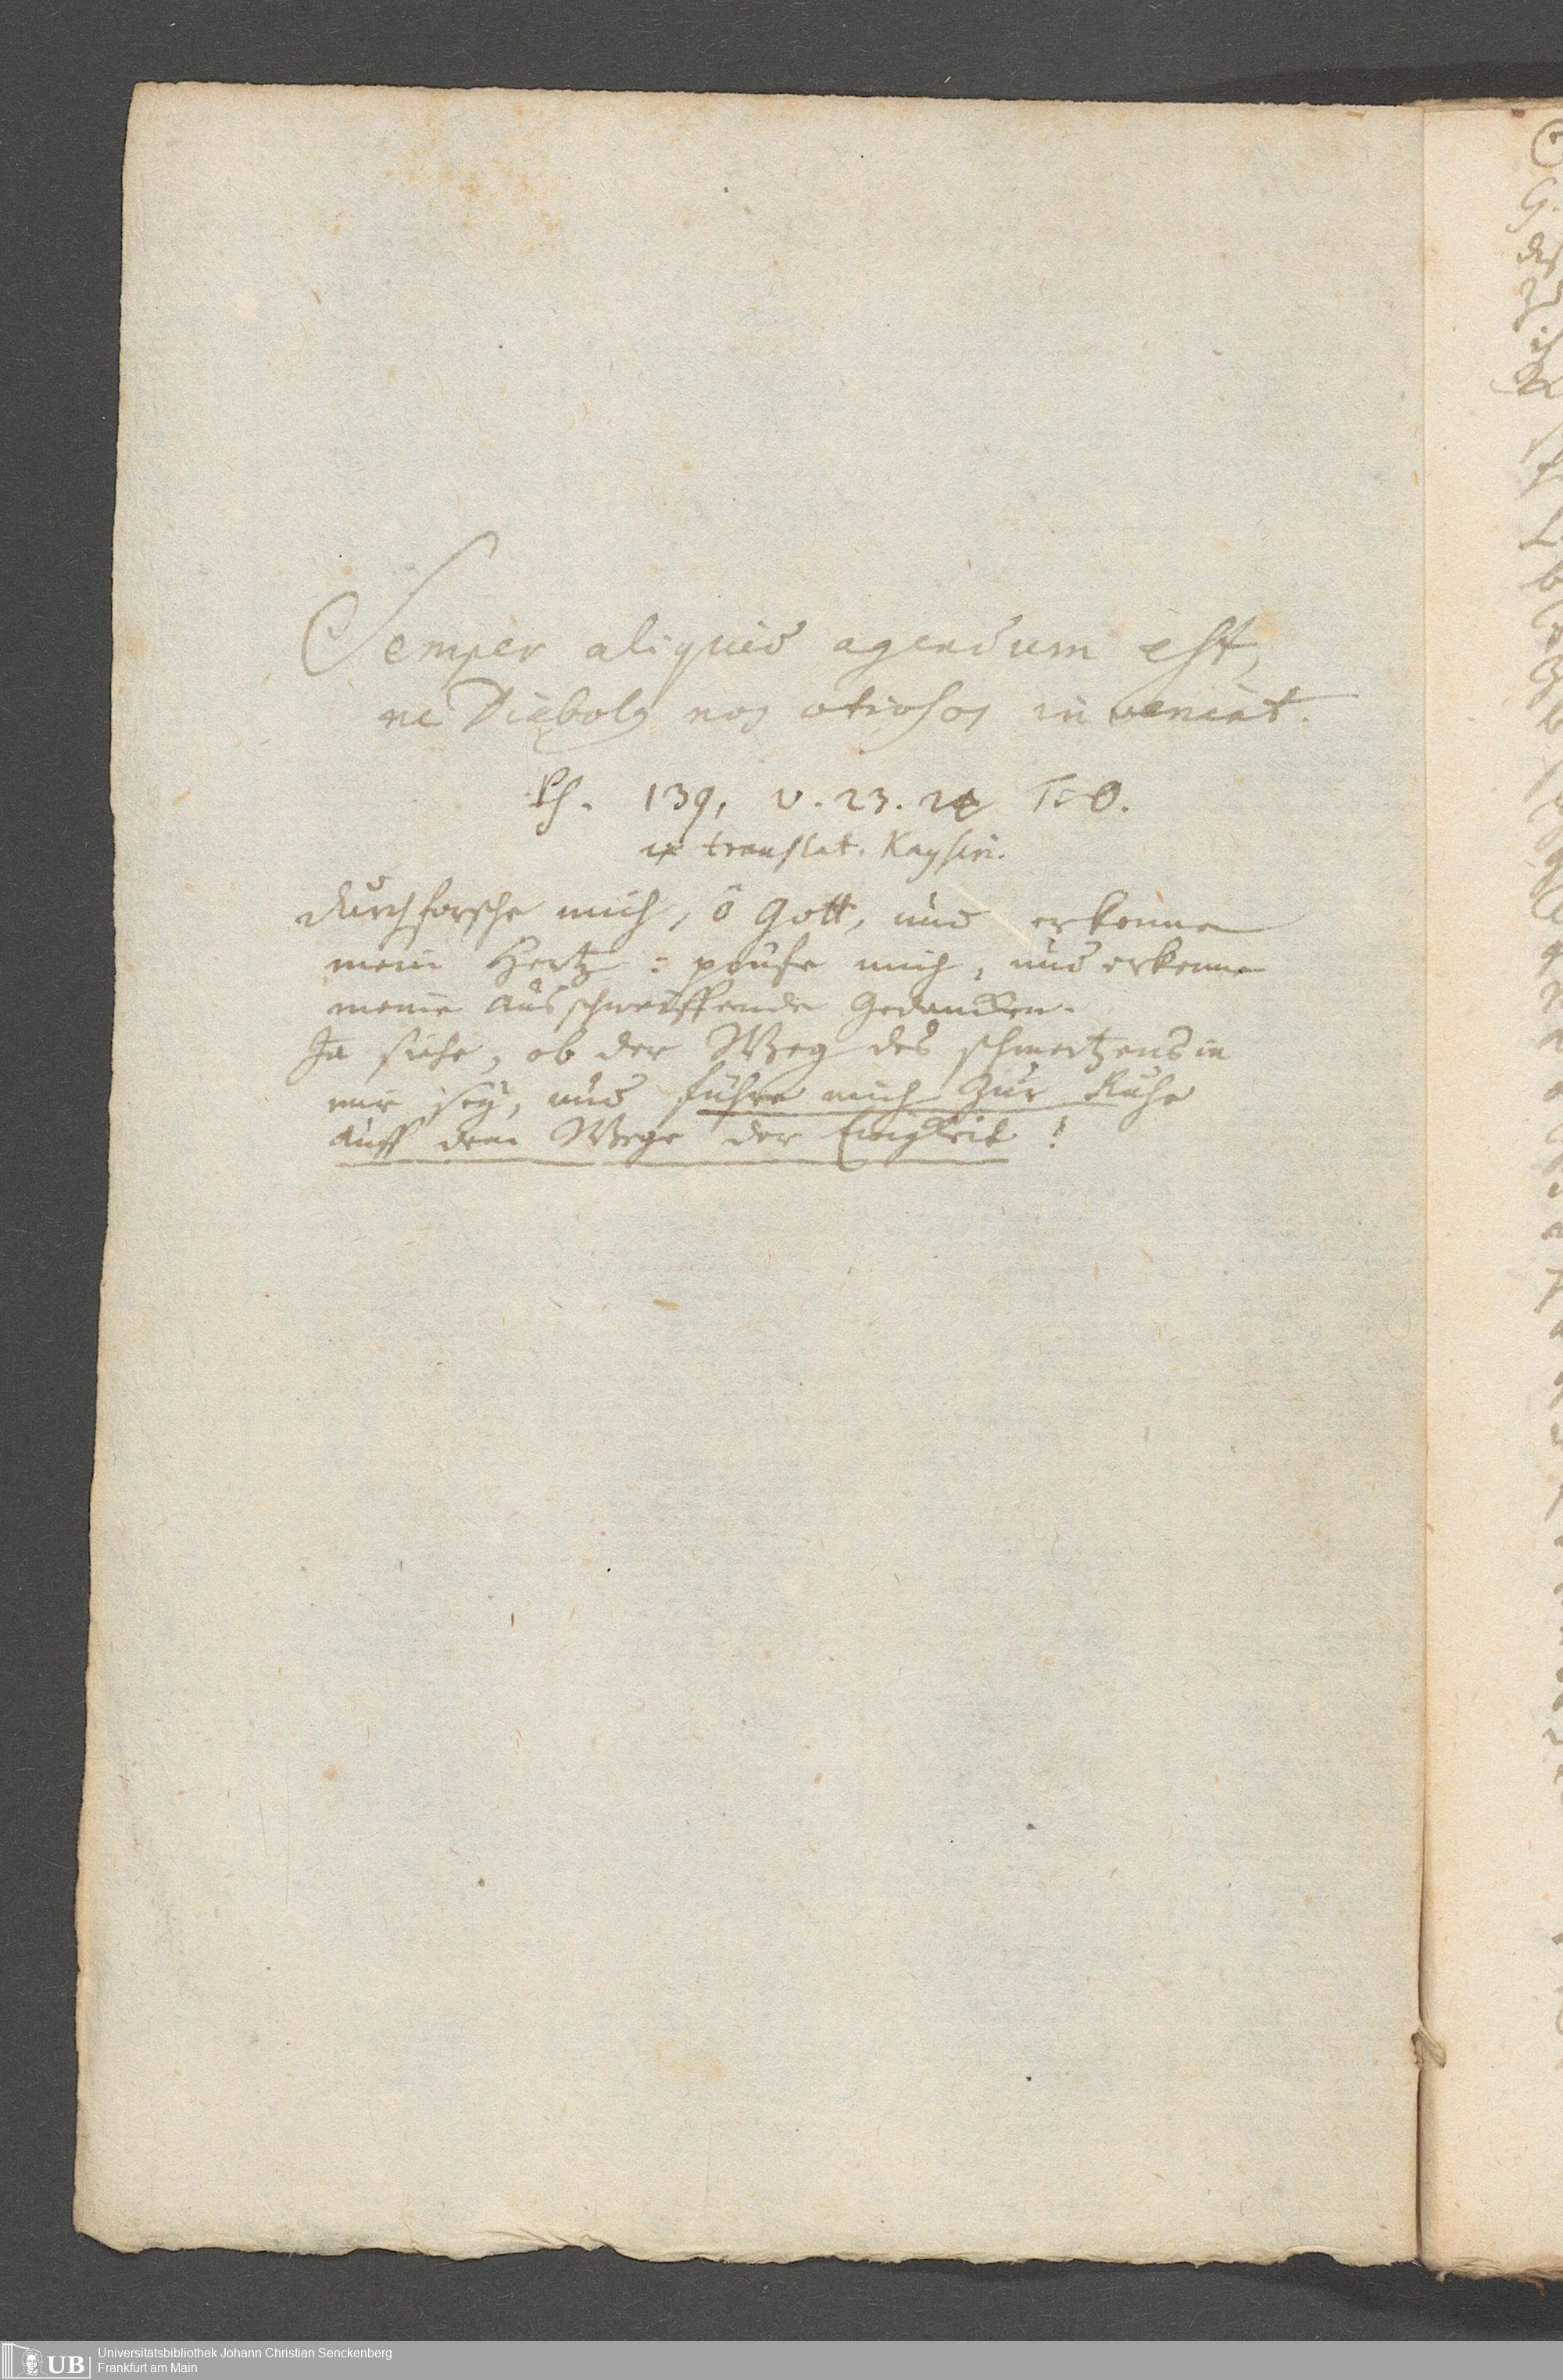 Semper aliquid agendum est,
ne Diabolꝯ nos otiosos inveniat.
Ps. 139, v. 23. 24
ex translat. Kaysiri.
Durchforsche mich, ô Gott, und erkenne
mein Hertz: prüfe mich, und erkenne
meine ausschweiffende Gedancken.
Ja siehe, ob der Weg des schmertzens in
mir sey, und führe mich zur Ruhe
auff dem Wege der Ewigkeit!
Universitätsbibliothek Johann Christian Senckenberg
UB
Frankfurt am Main